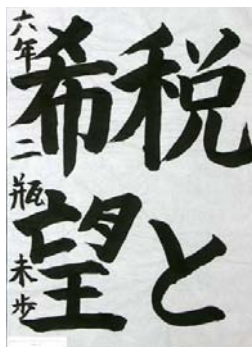 税と
希望
六年 二瓶 未歩